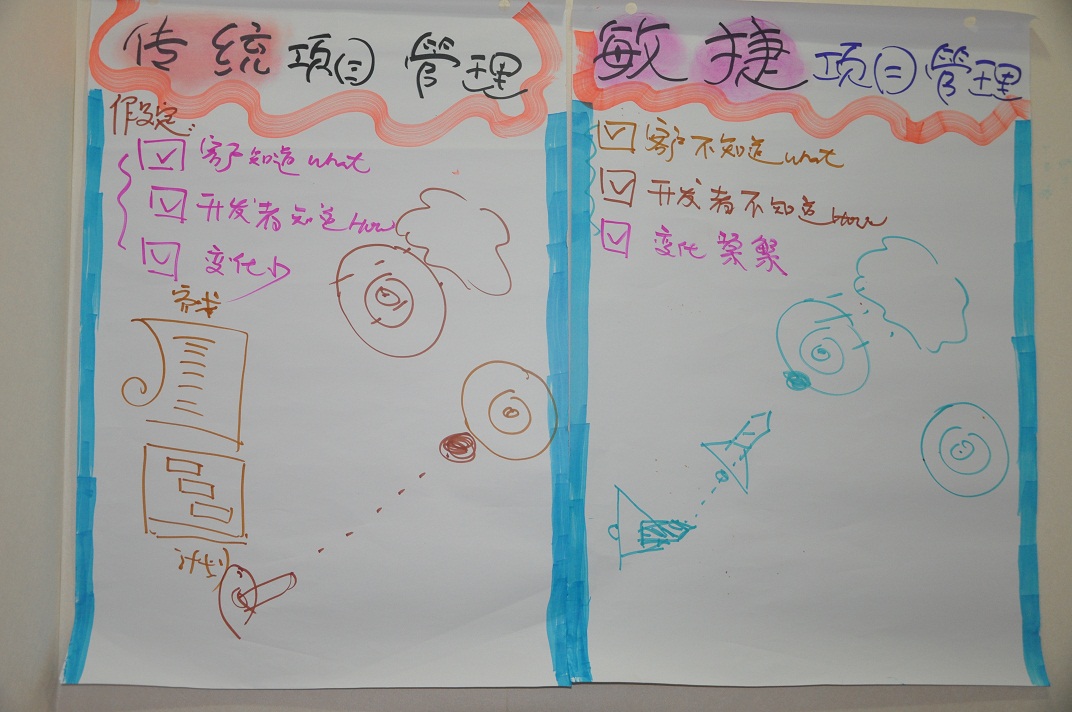 传统项目管理
假设定:
客户知道what
开发者知道How
变化少
需求
计划
敏捷项目管理
客户不知道what
开发者不知道How
变化频繁